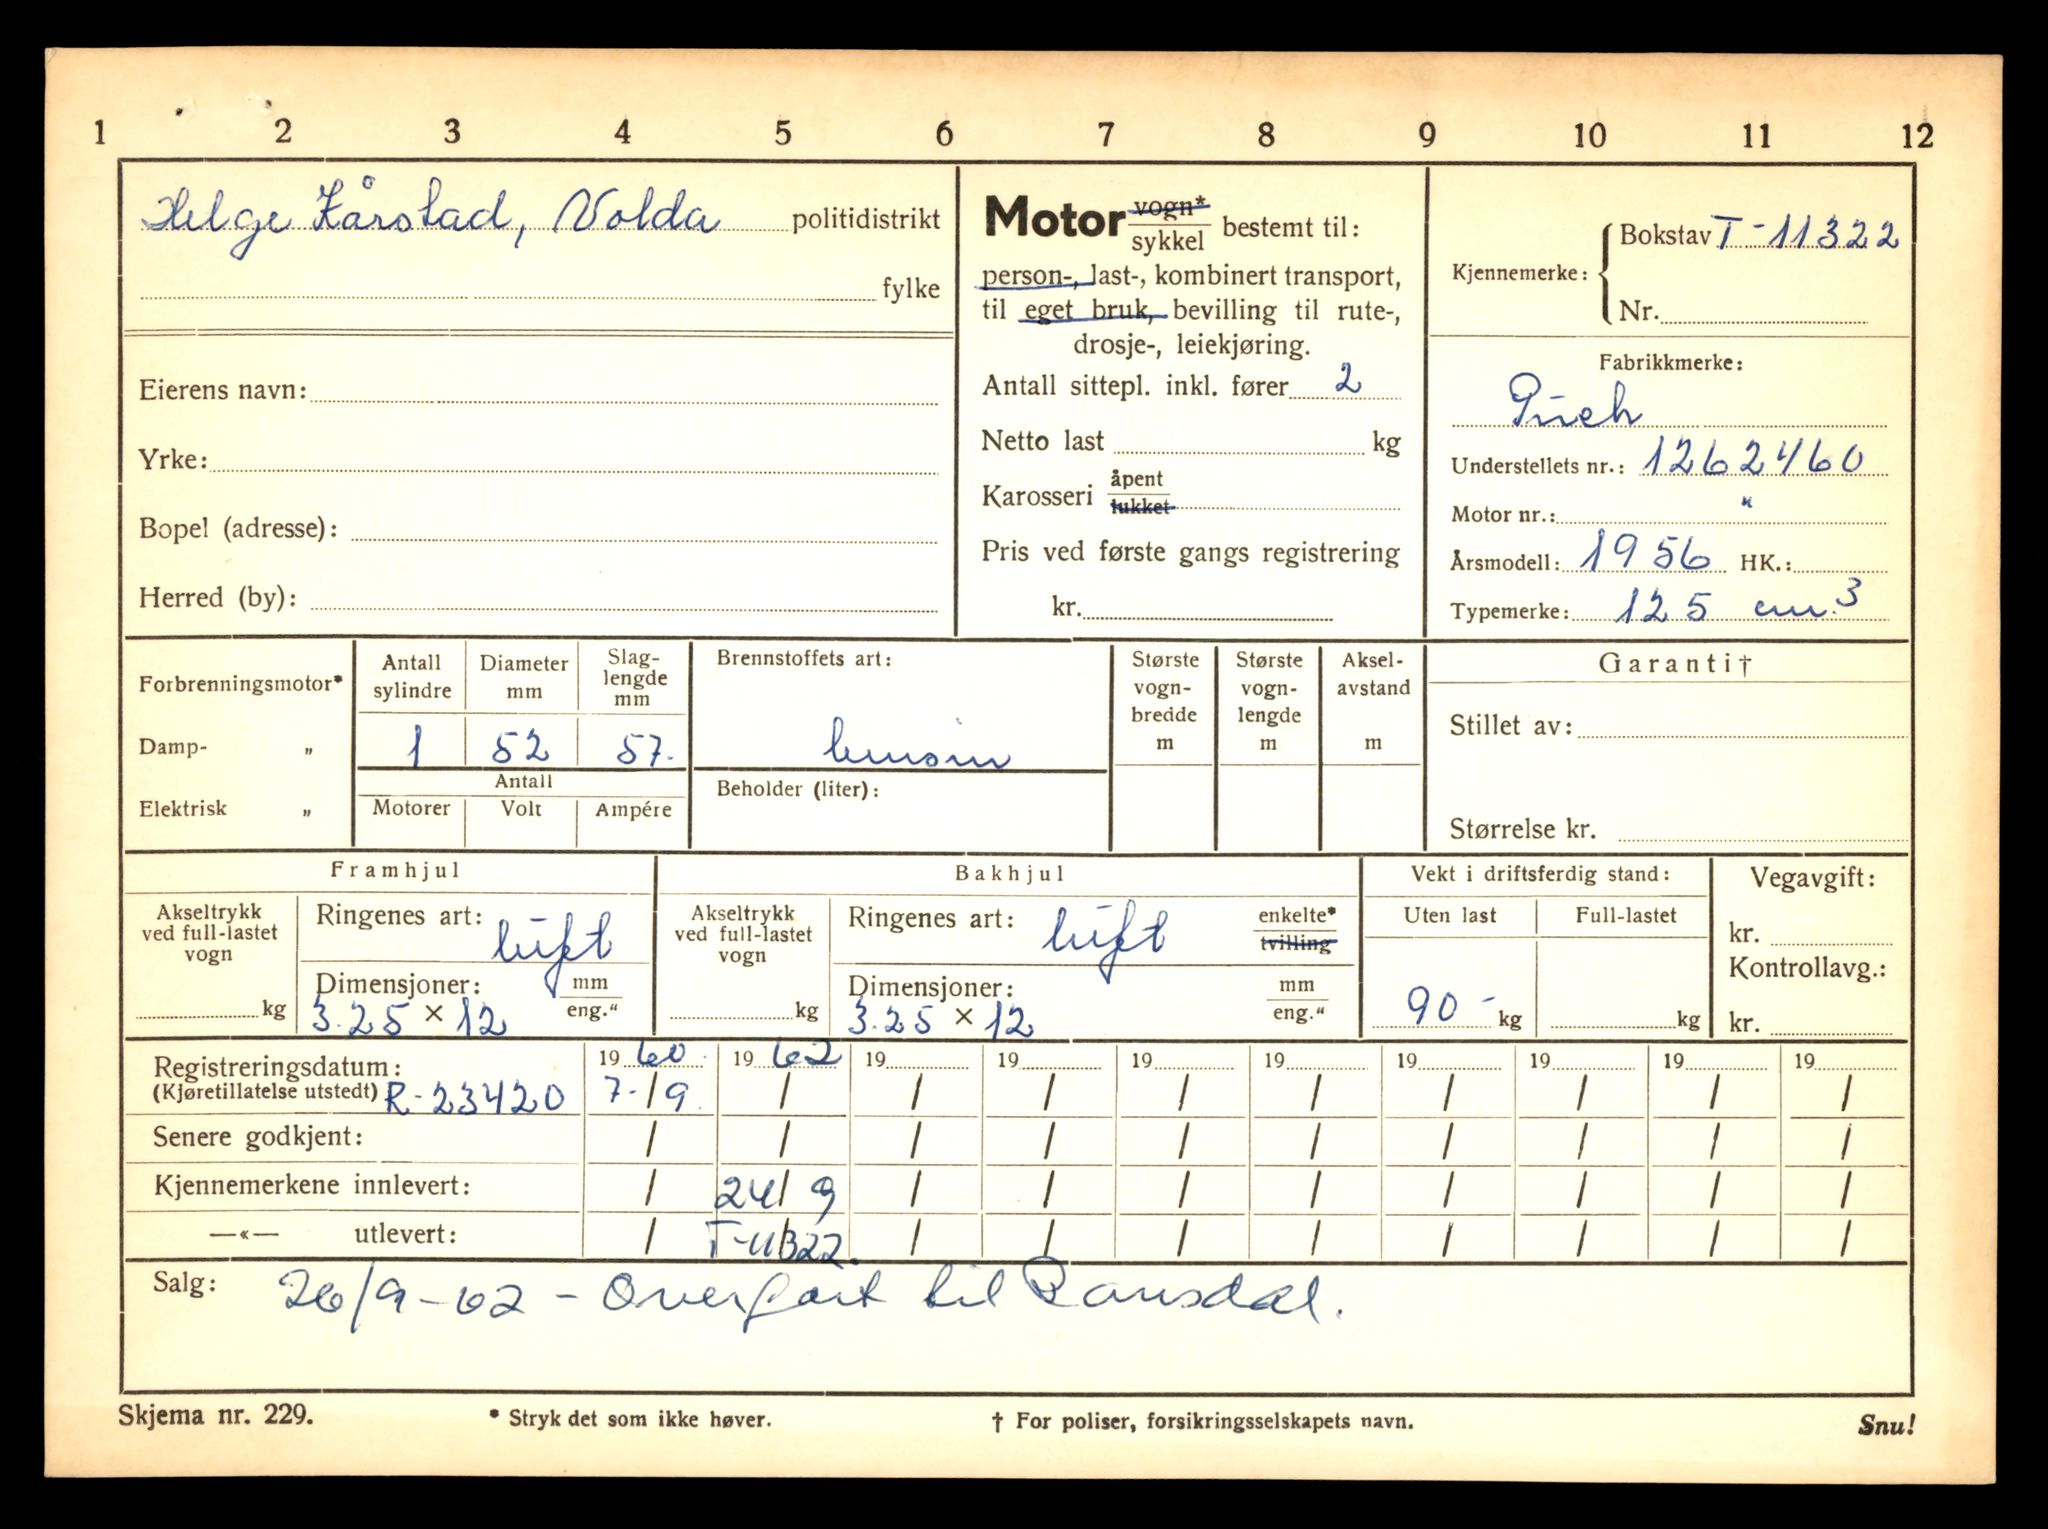 1 2 3 4 5 6 7 8 9 10 11 12
Helge Kårstad, Volda politidistrikt
fylke
Eierens navn:
Yrke:
Bopel (adresse):
Herred (by):
Motor vogn* sykkel bestemt til:
person-, last-, kombinert transport,
til eget bruk, bevilling til rute-,
drosje-, leiekjøring.
Antall sittepl. inkl. fører 2
Netto last kg
Karosseri åpent lukket
Pris ved første gangs registrering
kr.
Kjennemerke: Bokstav T-11322
Nr.
Fabrikkmerke:
Puch
Understellets nr.: 1262460
Motor nr.: "
Årsmodell: 1956 HK.:
Typemerke: 125 cm.3
Forbrenningsmotor*
Damp- "
Elektrisk "
Antall sylindre
Diameter mm
Slag-lengde mm
1 52 57.
Antall
Motorer Volt Ampére
Brennstoffets art:
bensin
Beholder (liter):
Største vogn-bredde m
Største vogn-lengde m
Aksel-avstand m
Garanti†
Stillet av:
Størrelse kr.
Framhjul
Akseltrykk ved full-lastet vogn
kg
Ringenes art: luft
Dimensjoner: mm eng."
3.25 × 12
Bakhjul
Akseltrykk ved full-lastet vogn
kg
Ringenes art: luft enkelte* tvilling
Dimensjoner: mm eng."
3.25 × 12
Vekt i driftsferdig stand:
Uten last Full-lastet
90- kg kg
Vegavgift:
kr.
Kontrollavg.:
kr.
Registreringsdatum: 19 60. 19 62 19 19 19 19 19 19 19 19
(Kjøretillatelse utstedt) R-23420 7-/9. / / / / / / / / /
Senere godkjent: / / / / / / / / / /
Kjennemerkene innlevert: / 24/9 / / / / / / / /
—«— utlevert: / T-11322. / / / / / / / /
Salg: 26/9-62 - Overført til Ransdal.
Skjema nr. 229. * Stryk det som ikke høver. † For poliser, forsikringsselskapets navn. Snu!